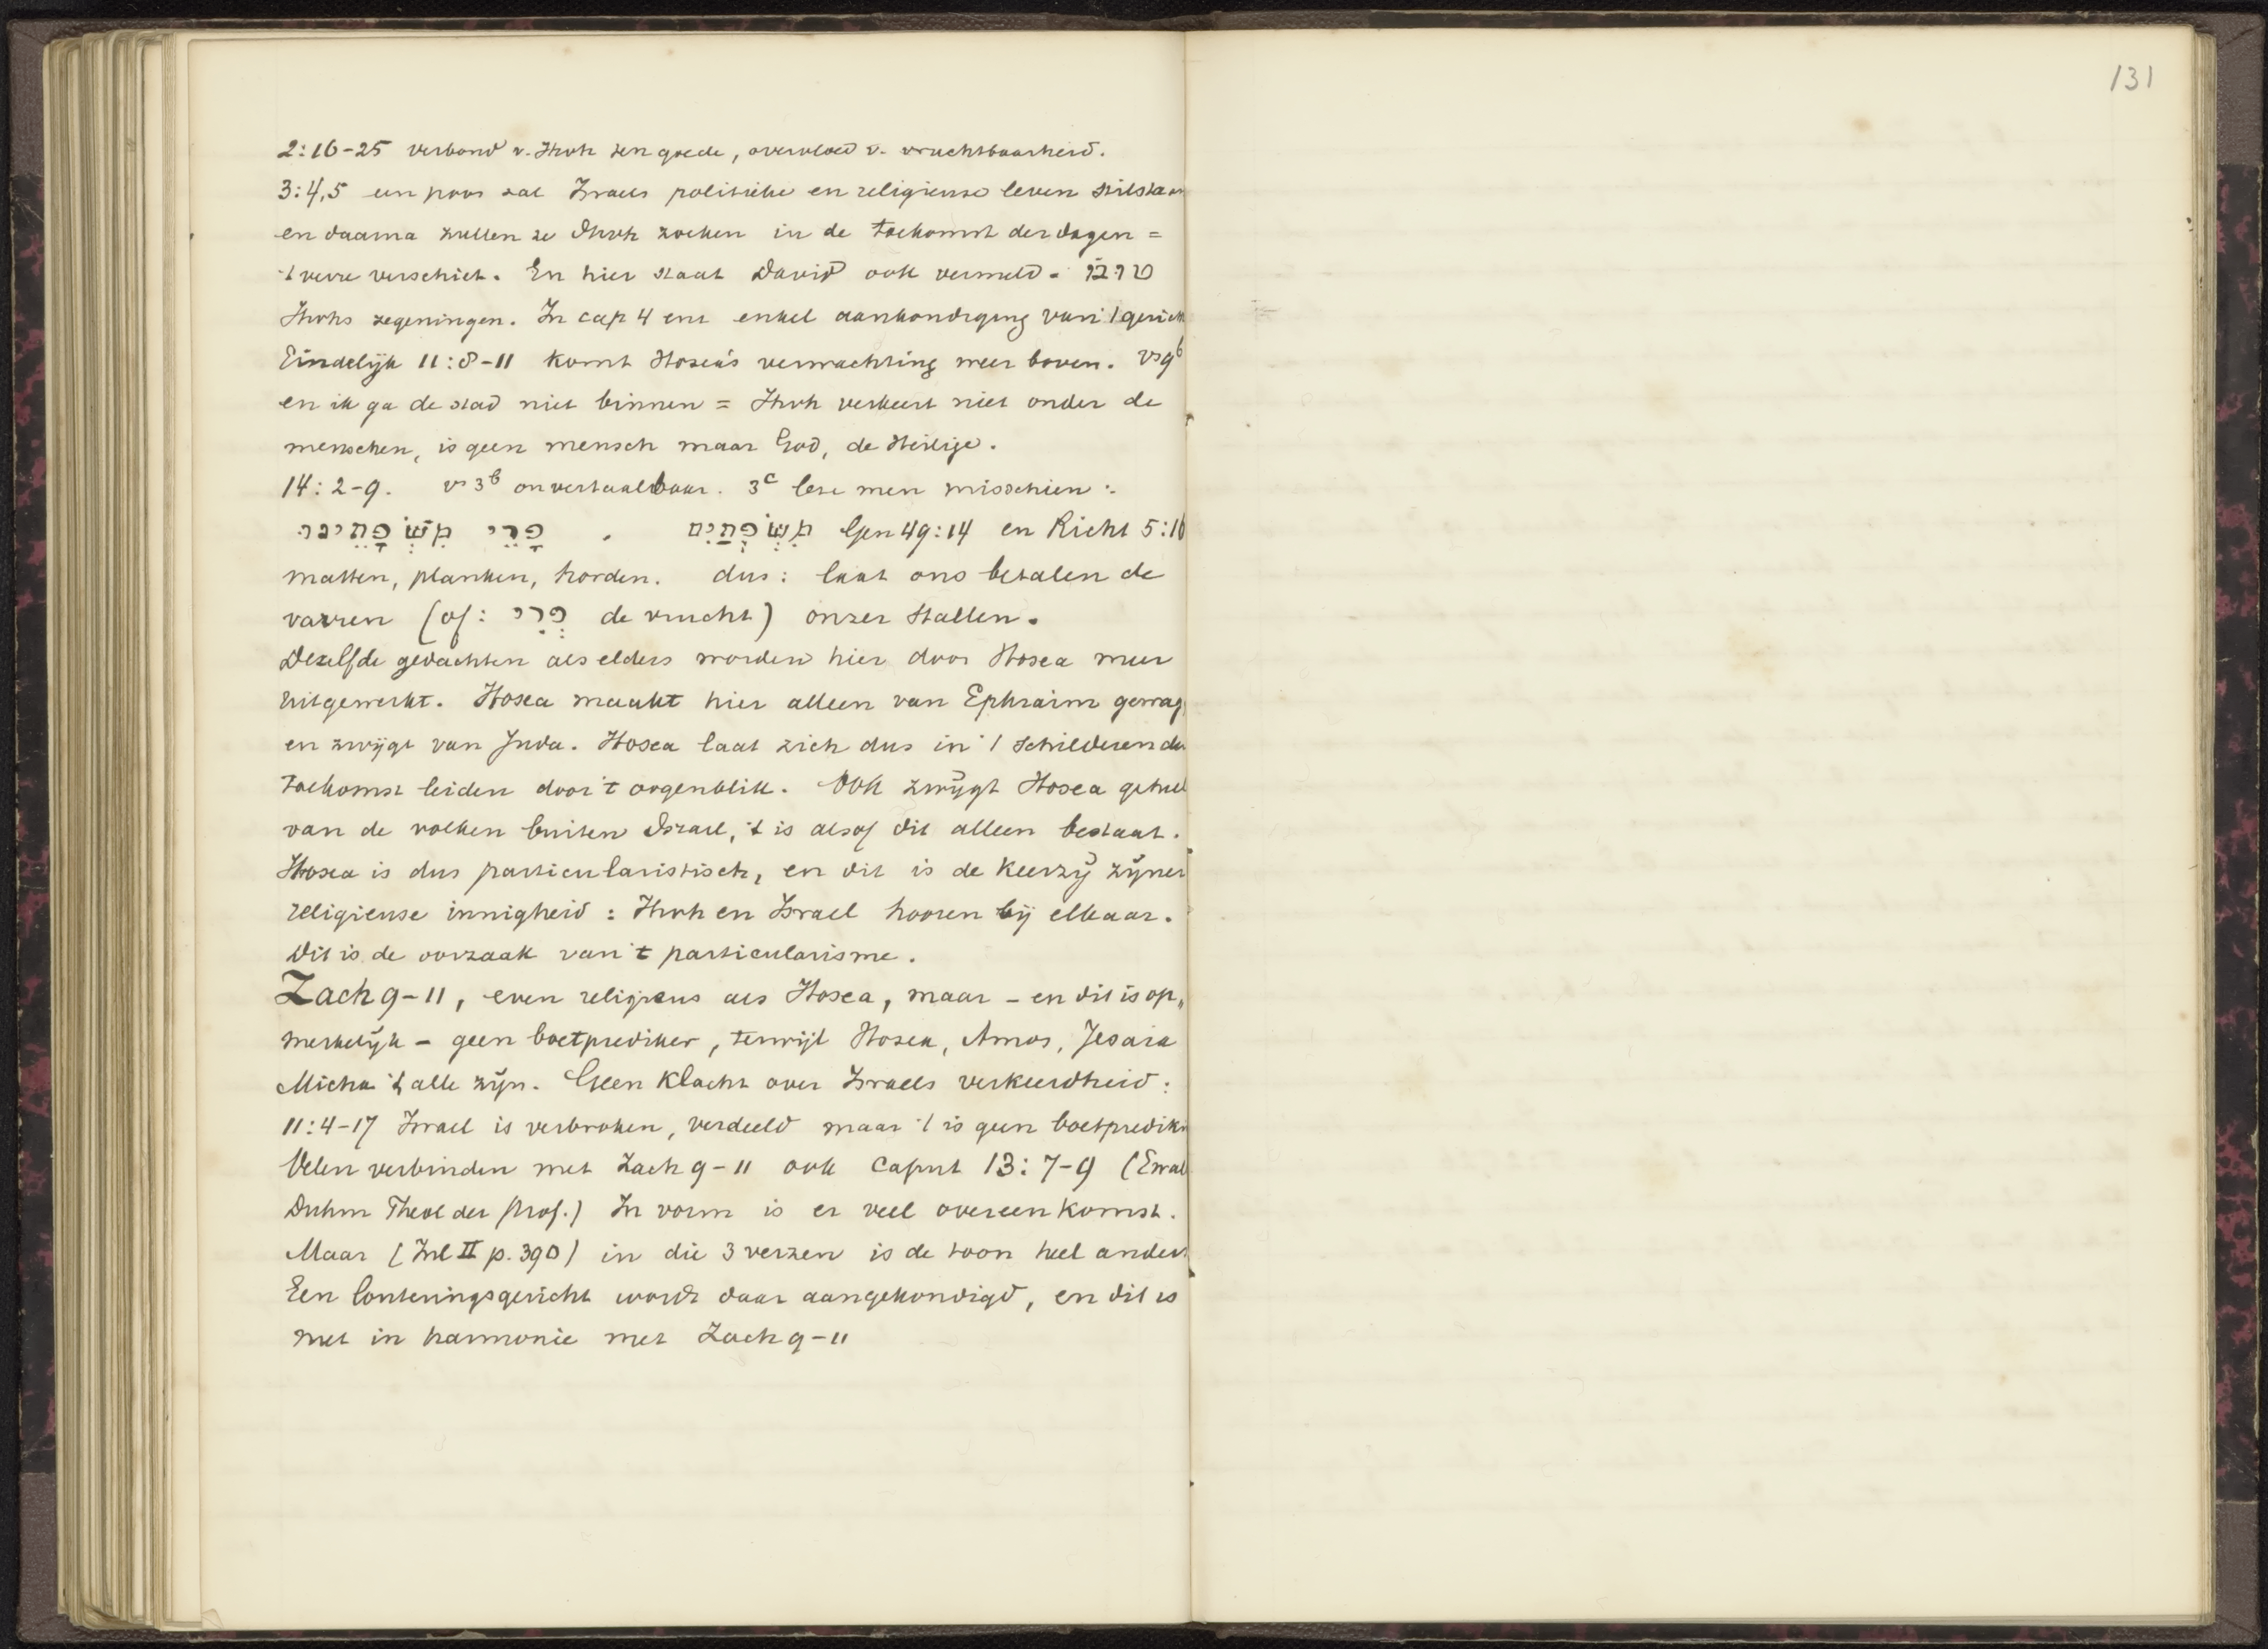 131
2:16-25 verbond v. Jhvh ten goede, overvloed v. vruchtbaarheid.
3:4,5 een poos zal Israels politieke en religieuse leven stilstaan
en daarna zullen ze Jhvh zoeken in de toekomst der dagen =
't verre verschiet. En hier staat David ook vermeld. טובו
Jhvhs zegeningen. In cap 4 enz enkel aankondiging van 't gericht
Eindelijk 11:8-11 komt Hosea's verwachting weer boven. vs 9b
en ik ga de stad niet binnen = Jhvh verkeert niet onder de
menschen, is geen mensch maar God, de Heilige.
14: 2-9. vs 3b onvertaalbaar. 3c leze men misschien:
פָּרֵי מִשְׁפָּתֵינוּ. מִשְׁפְּתַיִם Gen 49:14 en Richt 5:16
matten, planken, horden. dus: laat ons betalen de
varren (of: פְּרִי de vrucht) onzer stallen.
Dezelfde gedachten als elders worden hier door Hosea meer
uitgewerkt. Hosea maakt hier alleen van Ephraim gewag
en zwijgt van Juda. Hosea laat zich dus in 't schilderen der
toekomst leiden door 't oogenblik. Ook zwijgt Hosea geheel
van de volken buiten Israel, 't is alsof dit alleen bestaat.
Hosea is dus particularistisch, en dit is de keerzij zijner
religieuse innigheid: Jhvh en Israel hooren bij elkaar.
Dit is de oorzaak van 't particularisme.
Zach 9-11, even religieus als Hosea, maar - en dit is op„
merkelijk - geen boetprediker, terwijl Hosea, Amos, Jesaia
Micha 't alle zijn. Geen klacht over Israels verkeerdheid:
11:4-17 Israel is verbroken, verdeeld maar 't is geen boetpredikin
Velen verbinden met Zach 9-11 ook Caput 13: 7-9 (Ewal
Duhm Theol der Prof.) In vorm is er veel overeenkomst.
Maar (Inl II p. 390) in die 3 verzen is de toon heel anders
Een louteringsgericht wordt daar aangekondigd, en dit is
niet in harmonie met Zach 9-11